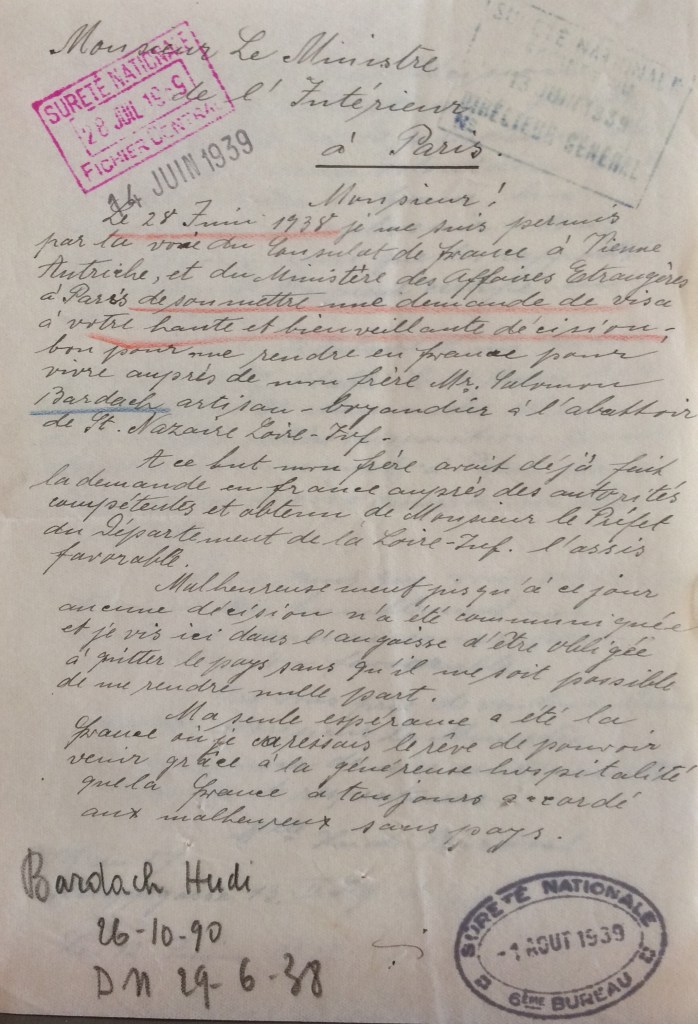 Monsieur Le Ministre
de l'Intérieur
à Paris.
SURETÉ NATIONALE
28 JUIL 1939
FICHIER CENTRAL
14 JUIN 1939
SURETÉ NATIONALE
13 JUIN 1939
DIRECTEUR GENERAL
Monsieur!
Le 28 Juin 1938 je me suis permis
par la voie du Consulat de france à Vienne
Autriche, et du Ministère des Affaires Etrangères
à Paris de soumettre une demande de visa
à votre haute et bienveillante décision,
bon pour me rendre en france pour
vivre auprès de mon frère Mr. Salomon
Bardach artisan-boyaudier à l'abattoir
de St. Nazaire Loire-Inf-
A ce but mon frère avait déjà fait
la demande en france auprès des autorités
compétentes et obtenu de Monsieur le Préfet
du Département de la Loire-Inf. l'assis
favorable.
Malheureusement jusqu'à ce jour
aucune décision n'a été communiquée
et je vis ici dans l'angoisse d'être obligée
à quitter le pays sans qu'il me soit possible
de me rendre nulle part.
Ma seule espérance a été la
france où je caressais le rêve de pouvoir
venir grâce à la généreuse hospitalité
que la france a toujours accordé
aux malheureux sans pays.
Bardach Hudi
26-10-90
DN 29-6-38
SURETÉ NATIONALE
-1 AOUT 1939
6ÈME BUREAU